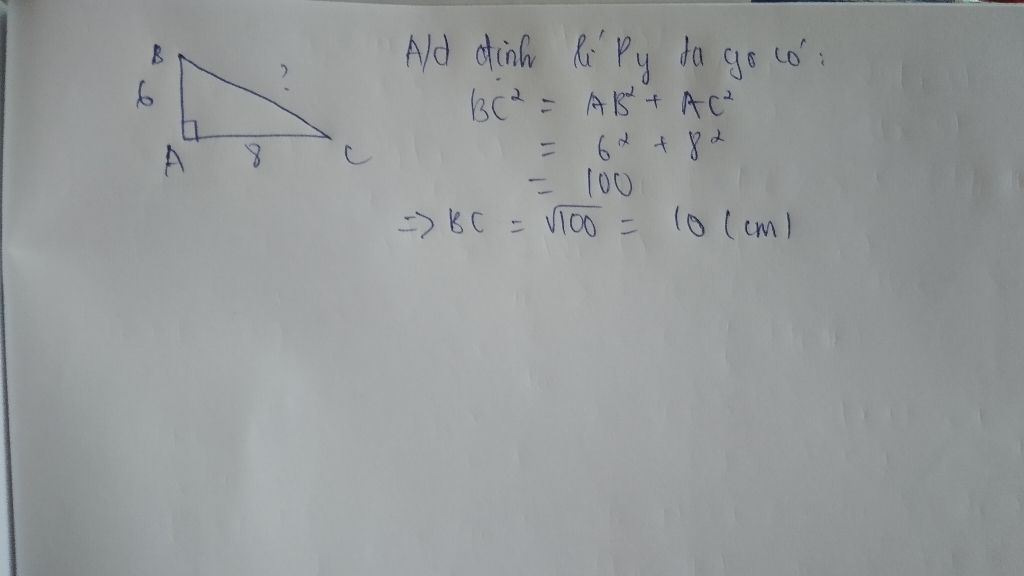 B
6
?
A
8
C
A/d định lí Py ta go có:
BC² = AB² + AC²
= 6² + 8²
= 100
=> BC = √100 = 10 (cm)